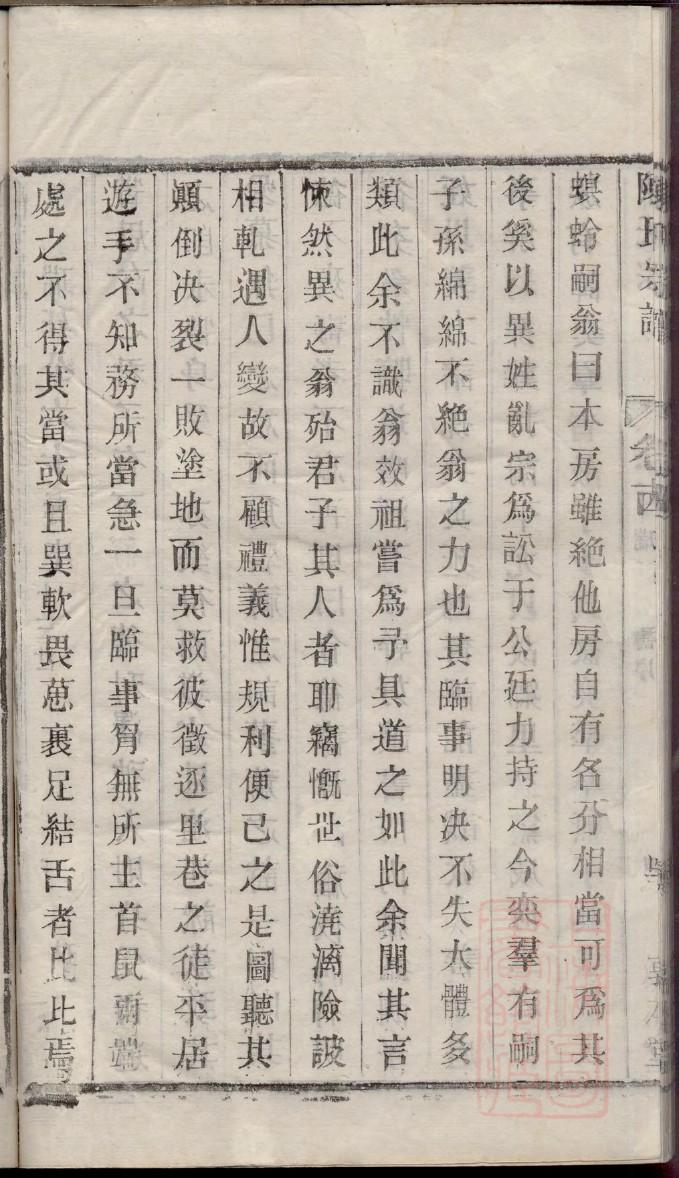 陳氏宗譜 卷四
螟蛉嗣翁曰本房雖絶他房自有名分相當可爲其
後奚以異姓亂宗爲訟于公廷力持之今奕羣有嗣
子孫綿綿不絶翁之力也其臨事明決不失大體多
類此余不識翁效祖嘗爲予具道之如此余聞其言
悚然異之翁殆君子其人者耶竊慨世俗澆漓險詖
相軋遇人變故不顧禮義惟規利便己之是圖聽其
顚倒决裂一敗塗地而莫救彼徵逐里巷之徒平居
遊手不知務所當急一旦臨事胷無所主首鼠兩端
處之不得其當或且巽軟畏葸裹足結舌者比比焉